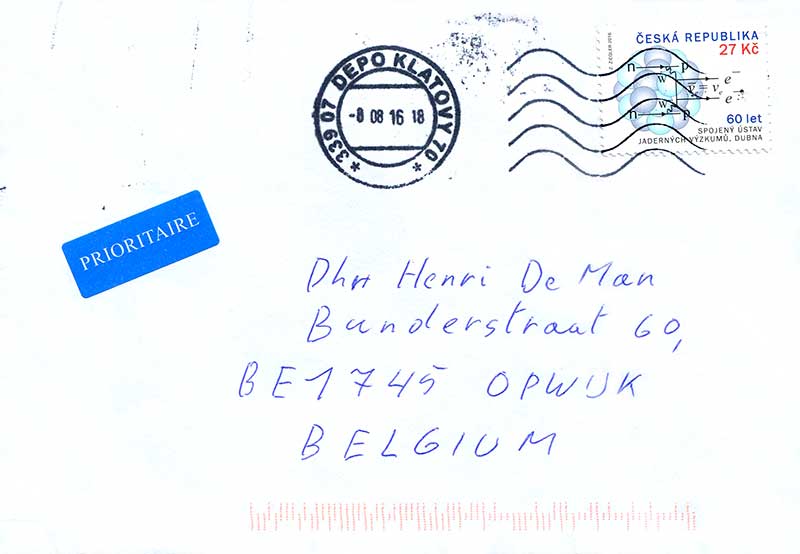 Z. ZIEGLER 2016
ČESKÁ REPUBLIKA
27 Kč
n p
W e⁻
ν̄e = νe
W e⁻
n p
60 let
SPOJENÝ ÚSTAV
JADERNÝCH VÝZKUMŮ, DUBNA
339 07 DEPO KLATOVY 70
-8 08 16 18
PRIORITAIRE
Dhr Henri De Man
Bunderstraat 60,
BE1745 OPWIJK
BELGIUM